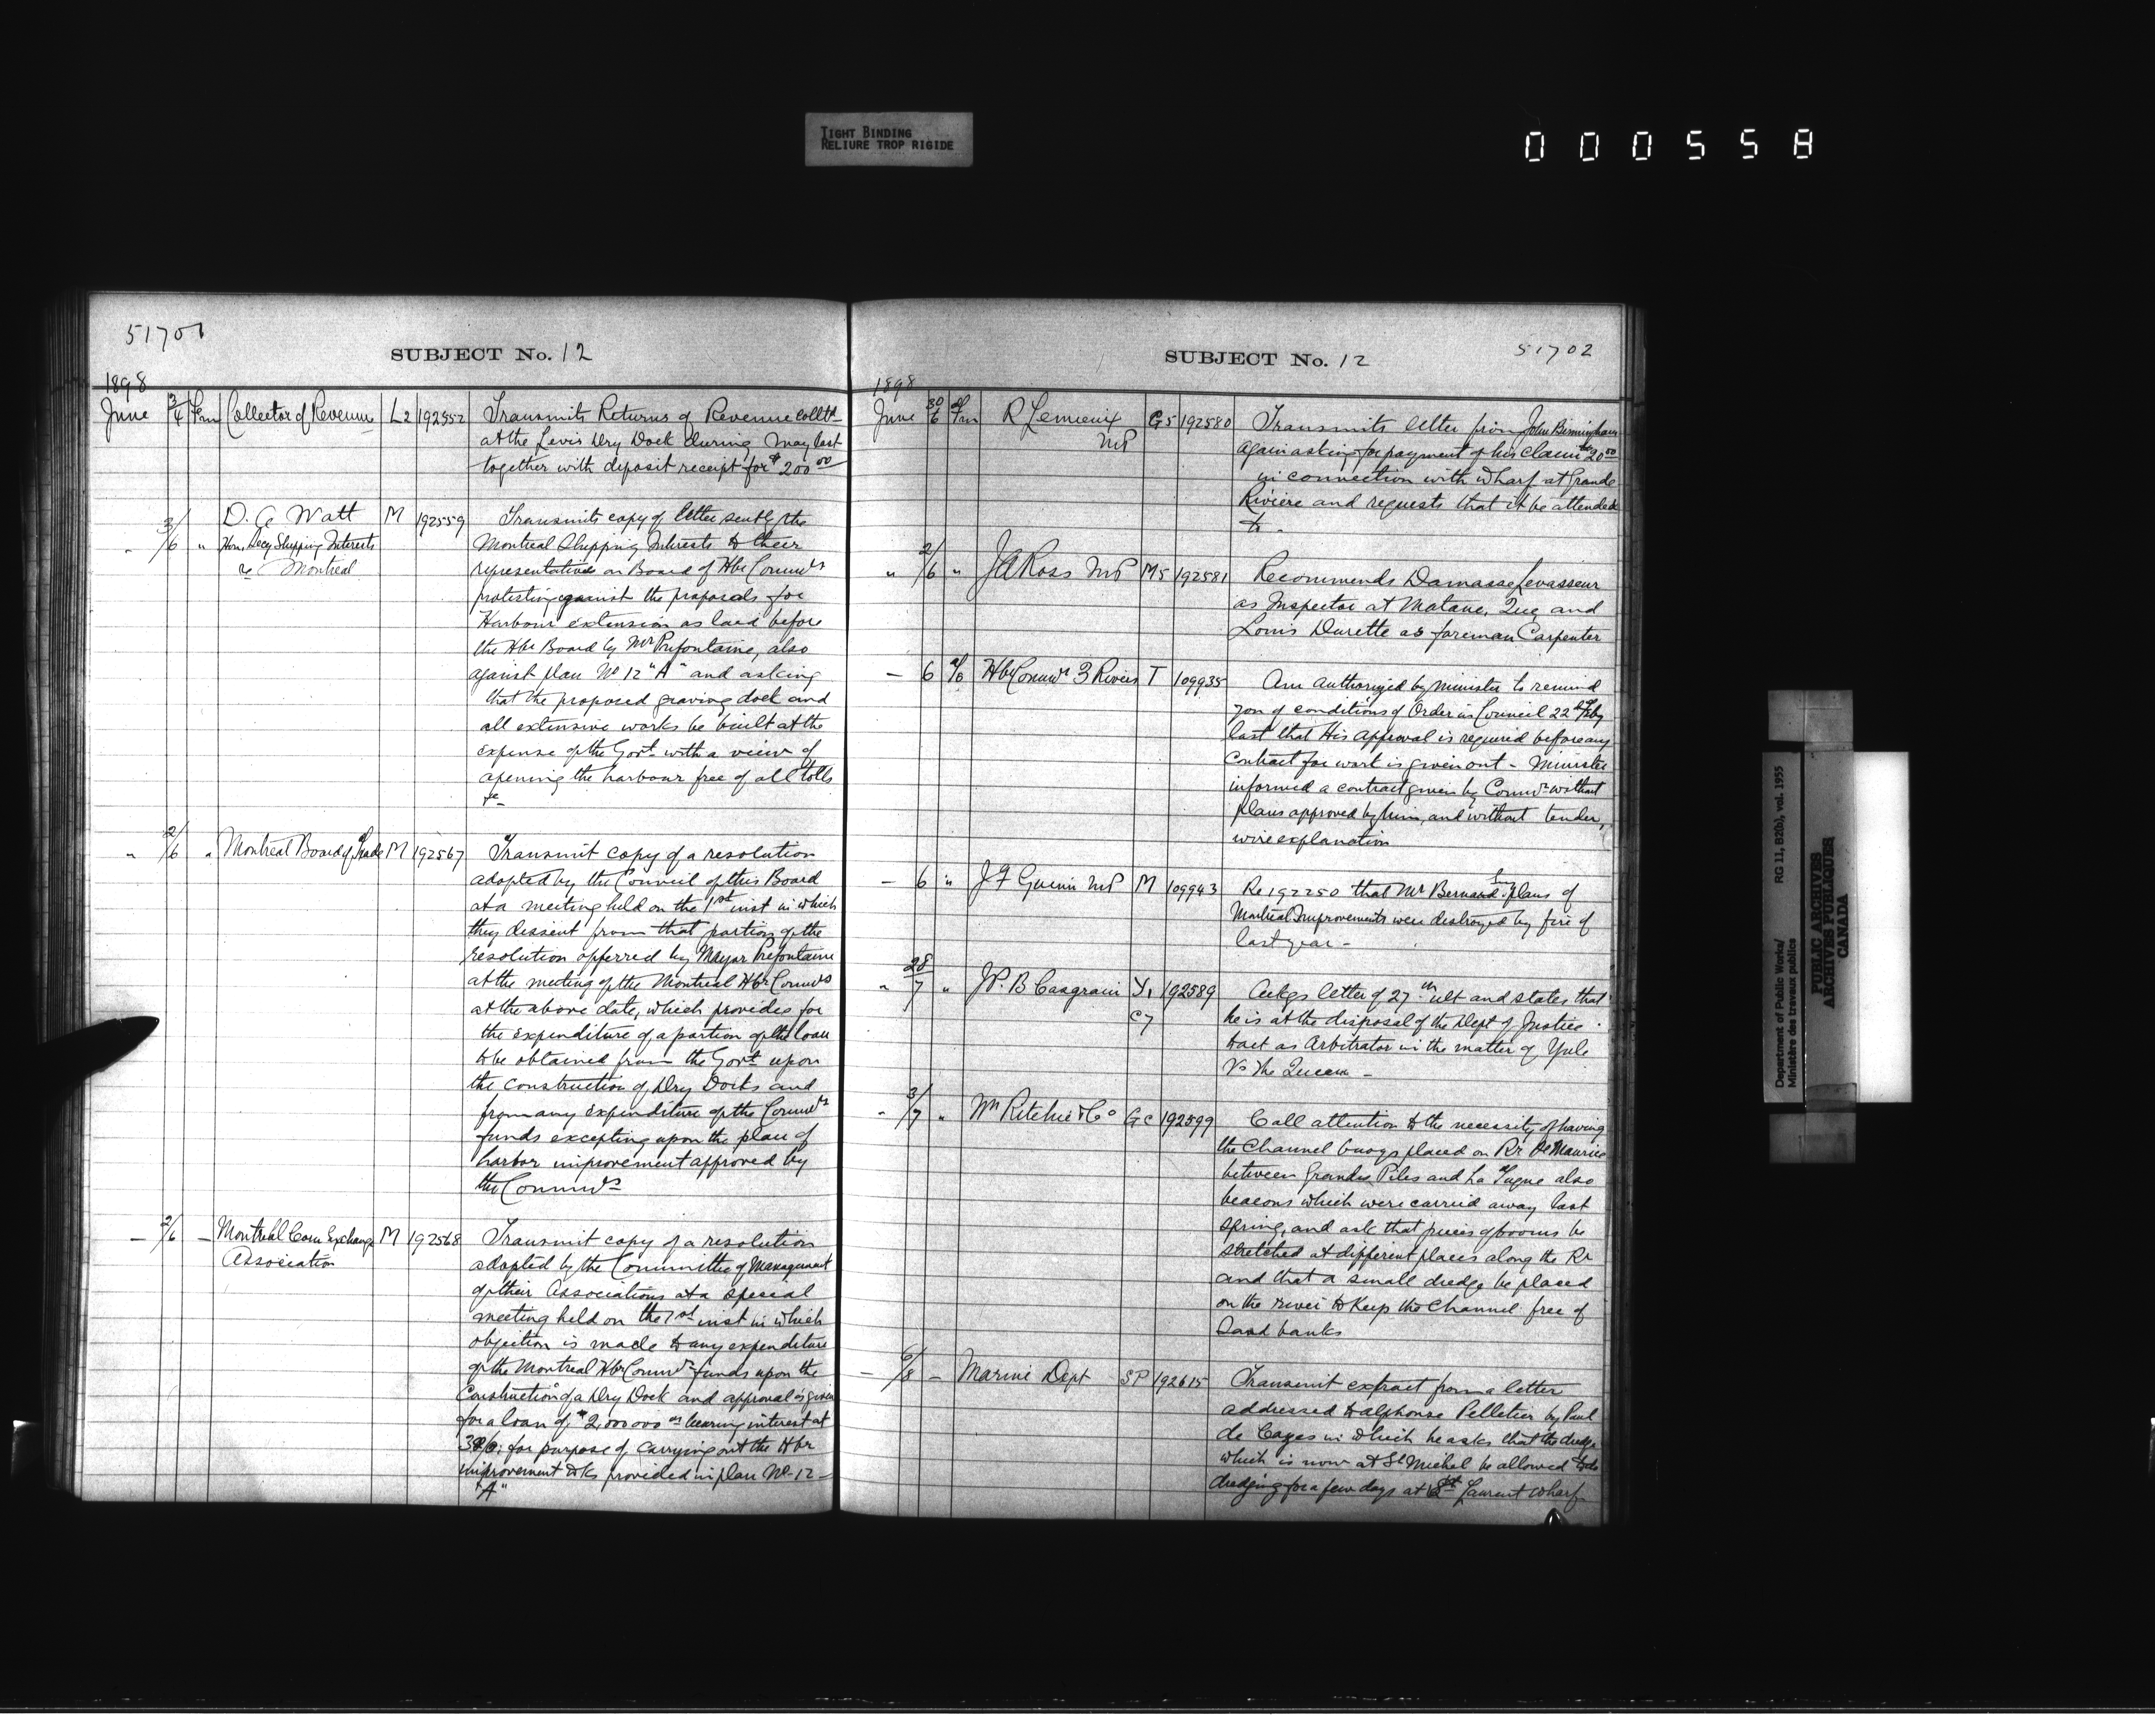 TIGHT BINDING
RELIURE TROP RIGIDE
000558
51701
SUBJECT No. 12
1898
June 3/4 Frm Collector of Revenue L2 192552 Transmits Returns of Revenue colltd
at the Levis Dry Dock during May last
together with deposit receipt for $200 00
" 3/6 " D. A Watt M 192559 Transmits copy of letter sent by the
Hon. Secy Shipping Interests Montreal Shipping Interests to their
Montreal representatives on Board of Hbr Commrs
protesting against the proposals for
Harbour extension as laid before
the Hbr Board by Mr Prefontaine, also
against plan No 12 "A" and asking
that the proposed graving dock and
all extensive works be built at the
expense of the Govt with a view of
opening the harbour free of all tolls
&c
" 2/6 " Montreal Board of Trade M 192567 Transmit copy of a resolution
adopted by the Council of this Board
at a meeting held on the 1st inst in which
they dissent from that portion of the
resolution offerred by Mayor Prefontaine
at the meeting of the Montreal Hbr Commrs
at the above date, which provides for
the expenditure of a portion of the loan
to be obtained from the Govt upon
the construction of Dry Docks and
from any expenditure of the Commrs
funds excepting upon the plan of
harbor improvement approved by
the Commrs
— 2/6 — Montreal Corn Exchange M 192568 Transmit copy of a resolution
Association adopted by the Committee of Management
of their Associations at a special
meeting held on the 1st inst in which
objection is made to any expenditure
of the Montreal Hbr Commrs funds upon the
Construction of a Dry Dock and approval is given
for a loan of $2,000 000 00 bearing interest at
3% for purpose of carrying out the Hbr
improvement wks provided in plan No 12 —
"A"
SUBJECT No. 12
51702
1898
June 30/6 Frm R Lemieux G5 192580 Transmits letter from John Birmingham
MP again asking for payment of his claim $20 00
in connection with wharf at Grande
Riviere and requests that it be attended
to -
" 2/6 " J A Ross MP M5 192581 Recommends Damasse Levasseur
as Inspector at Matane, Que, and
Louis Durette as foreman Carpenter
— 6 Hbr Commrs 3 Rivers T 109935 Am authorized by Minister to remind
you of conditions of Order in Council 22d Feby
last that His approval is required before any
contract for work is given out - Minister
informed a contract given by Commrs without
plans approved by him, and without tender,
wire explanation
— 6 " J F Quinn MP M 109943 Re 192250 that Mr Bernard plans of
Montreal Improvements were destroyed by fire of
last year -
" 28/7 " J.P. B Casgrain Y1 192589 Ackgs letter of 27th ult and states that
C7 he is at the disposal of the Dept of Justice
to act as Arbitrator in the matter of Yule
vs The Queen -
" 3/7 " Wm Ritchie & Co Gc 192599 Call attention to the necessity of having
the Channel buoys placed on Rr St Maurice
between Grandes Piles and La Tuque also
beacons which were carried away last
spring, and ask that pieces of booms be
stretched at different places along the Rr
and that a small dredge be placed
on the river to keep the Channel free of
Sand banks
— 6/8 — Marine Dept SP 192615 Transmit extract from a letter
addressed to Alphonse Pelletier by Paul
de Cazes in which he asks that the dredge
which is now at St Michel be allowed to do
dredging for a few days at St Laurent wharf
Department of Public Works/
Ministère des travaux publics
RG 11, B2(b), vol. 1955
PUBLIC ARCHIVES
ARCHIVES PUBLIQUES
CANADA